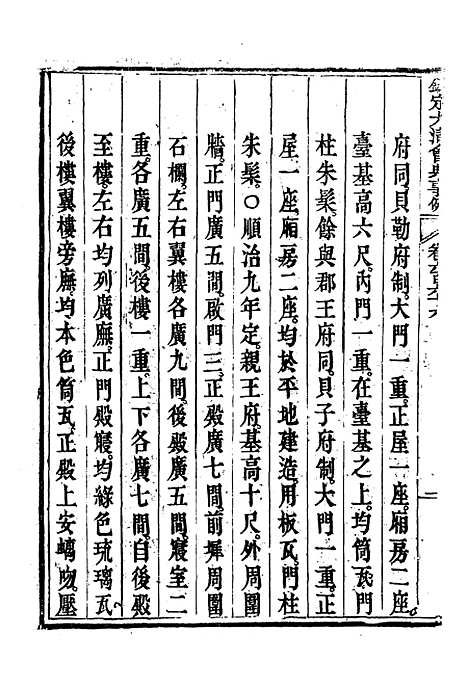 欽定大清會典事例 卷八百六十九 二
府同貝勒府制大門一重正屋一座廂房二座
臺基高六尺內門一重在臺基之上均筒瓦門
柱朱髹餘與郡王府同貝子府制大門一重正
屋一座廂房二座均於平地建造用板瓦門柱
朱髹○順治九年定親王府基高十尺外周圍
牆正門廣五間啟門三正殿廣七間前墀周圍
石欄左右翼樓各廣九間後殿廣五間寢室二
重各廣五間後樓一重上下各廣七間自後殿
至樓左右均列廣廡正門殿寢均綠色琉璃瓦
後樓翼樓旁廡均本色筒瓦正殿上安螭吻壓